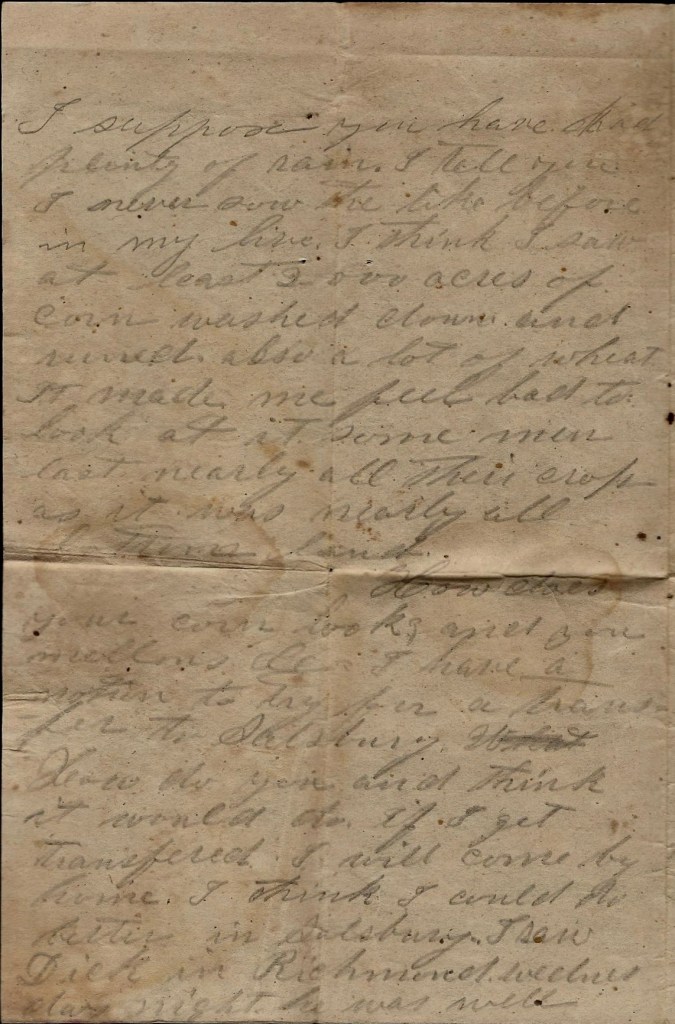 I suppose you have had
plenty of rain. I tell you
I never saw the like before
in my live. I think I saw
at least 2000 acres of
corn washed down and
ruined. also a lot of wheat
It made me feel bad to
look at it some men
lost nearly all their crop
as it was nearly all
land.
How does
your corn look, and you
mellons &c I have a
notion to try for a trans-
fer to Salsbury. What
How do you and think
it would do. if I get
transfered I will come by
home. I think I could do
better in Salsbury. I saw
Dick in Richmond wednes
day night he was well